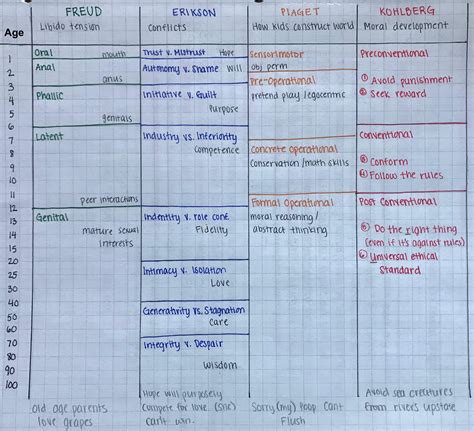 FREUD ERIKSON PIAGET KOHLBERG
Age Libido tension Conflicts How kids construct world Moral development
1 Oral mouth Trust v. Mistrust Hope Sensorimotor Preconventional
2 Anal Autonomy v. Shame Will obj perm
3 anus Pre-Operational ① Avoid punishment
4 Phallic Initiative v. Guilt pretend play/egocentric ② Seek reward
5 Purpose
6 genitals Conventional
7 Latent Industry vs. Inferiority
8 Competence Concrete Operational
9 Conservation/math skills ③ Conform
10 ④ Follow the rules
11 peer interactions Formal Operational Post Conventional
12 Genital Indentity v. role conf. moral reasoning/
13 mature sexual Fidelity abstract thinking ⑤ Do the right thing
14 interests (even if it's against rules)
15 ⑥ Universal ethical
20 Intimacy v. Isolation standard
25 Love
30
40 Generativity vs. Stagnation
50 Care
60
70 Integrity v. Despair
80
90 Wisdom
100
old age parents love grapes
Hope will purposely compete for love. (She) can't win.
Sorry (my) Poop Cant Flush
Avoid sea creatures from rivers upstate